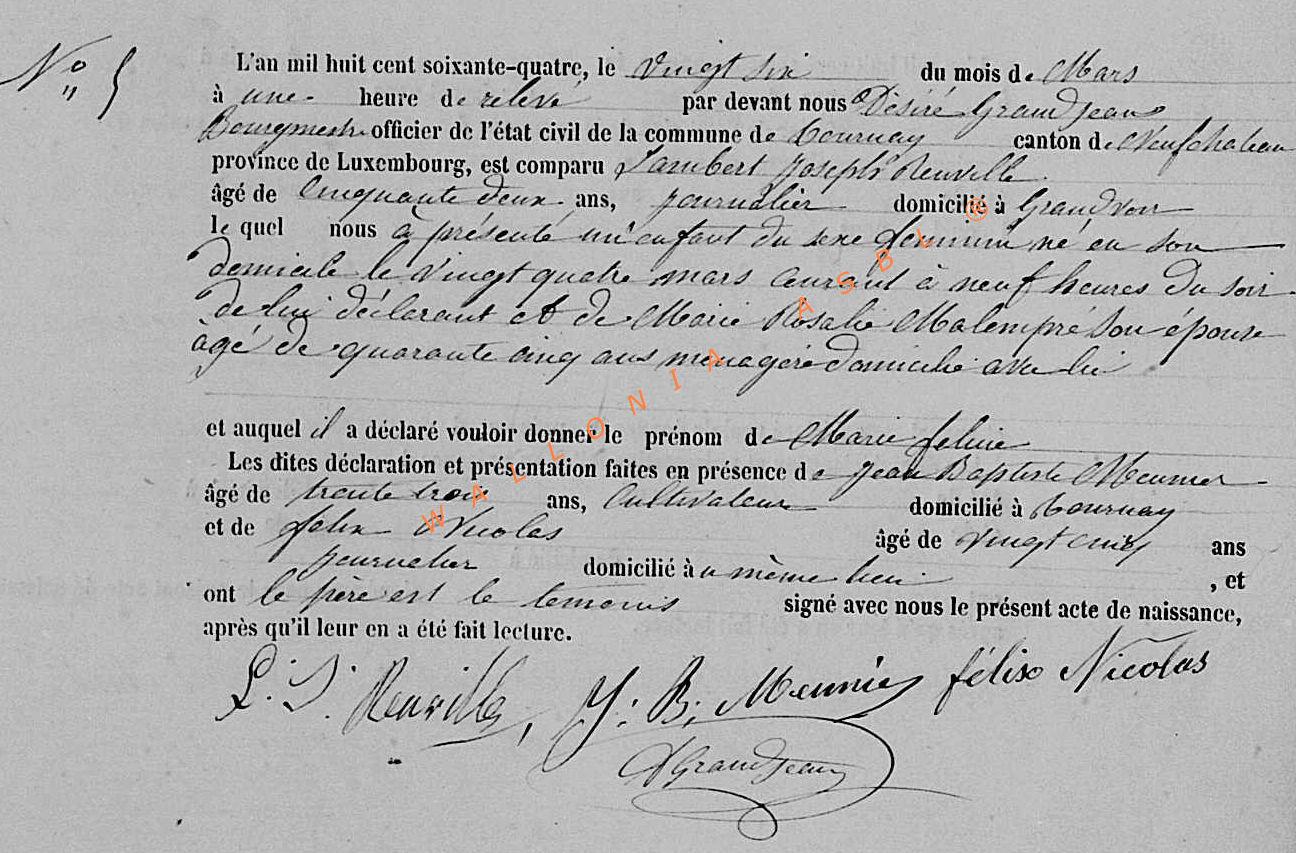 N° 5
L'an mil huit cent soixante-quatre, le Vingt six du mois de Mars
à une heure de relevé par devant nous Désiré Grandjean
Bourgmestre officier de l'état civil de la commune de Tournay canton de Neufchateau
province de Luxembourg, est comparu Lambert Joseph Renville
âgé de Cinquante deux ans, journalier domicilié à Grandvoir
le quel nous à présenté un enfant du sexe féminin né en son
domicile le vingt quatre mars courant à neuf heures du soir
de lui déclarant et de Marie Rosalie Malempré son épouse
âgé de quarante cinq ans ménagère domicilié avec lui
et auquel il a déclaré vouloir donner le prénom de Marie
Les dites déclaration et présentation faites en présence de Jean Baptiste Meunier
âgé de trente trois ans, Cultivateur domicilié à Tournay
et de felix Nicolas âgé de vingt ans
journalier domicilié à u même lieu , et
ont le père est le temoins signé avec nous le présent acte de naissance,
après qu'il leur en a été fait lecture.
L. J. Renville, J: B; Meunier félix Nicolas
DGrandjean
WALLONIA ASBL ®